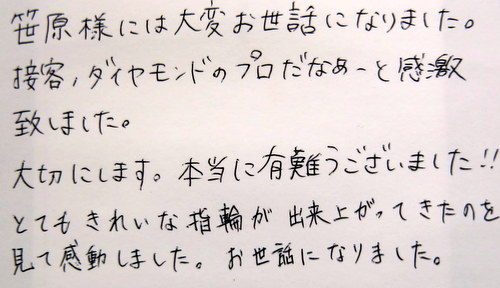 笹原様には大変お世話になりました。
接客,ダイヤモンドのプロだなぁーと感激
致しました。
大切にします。本当に有難うございました!!
とてもきれいな指輪が出来上がってきたのを
見て感動しました。お世話になりました。